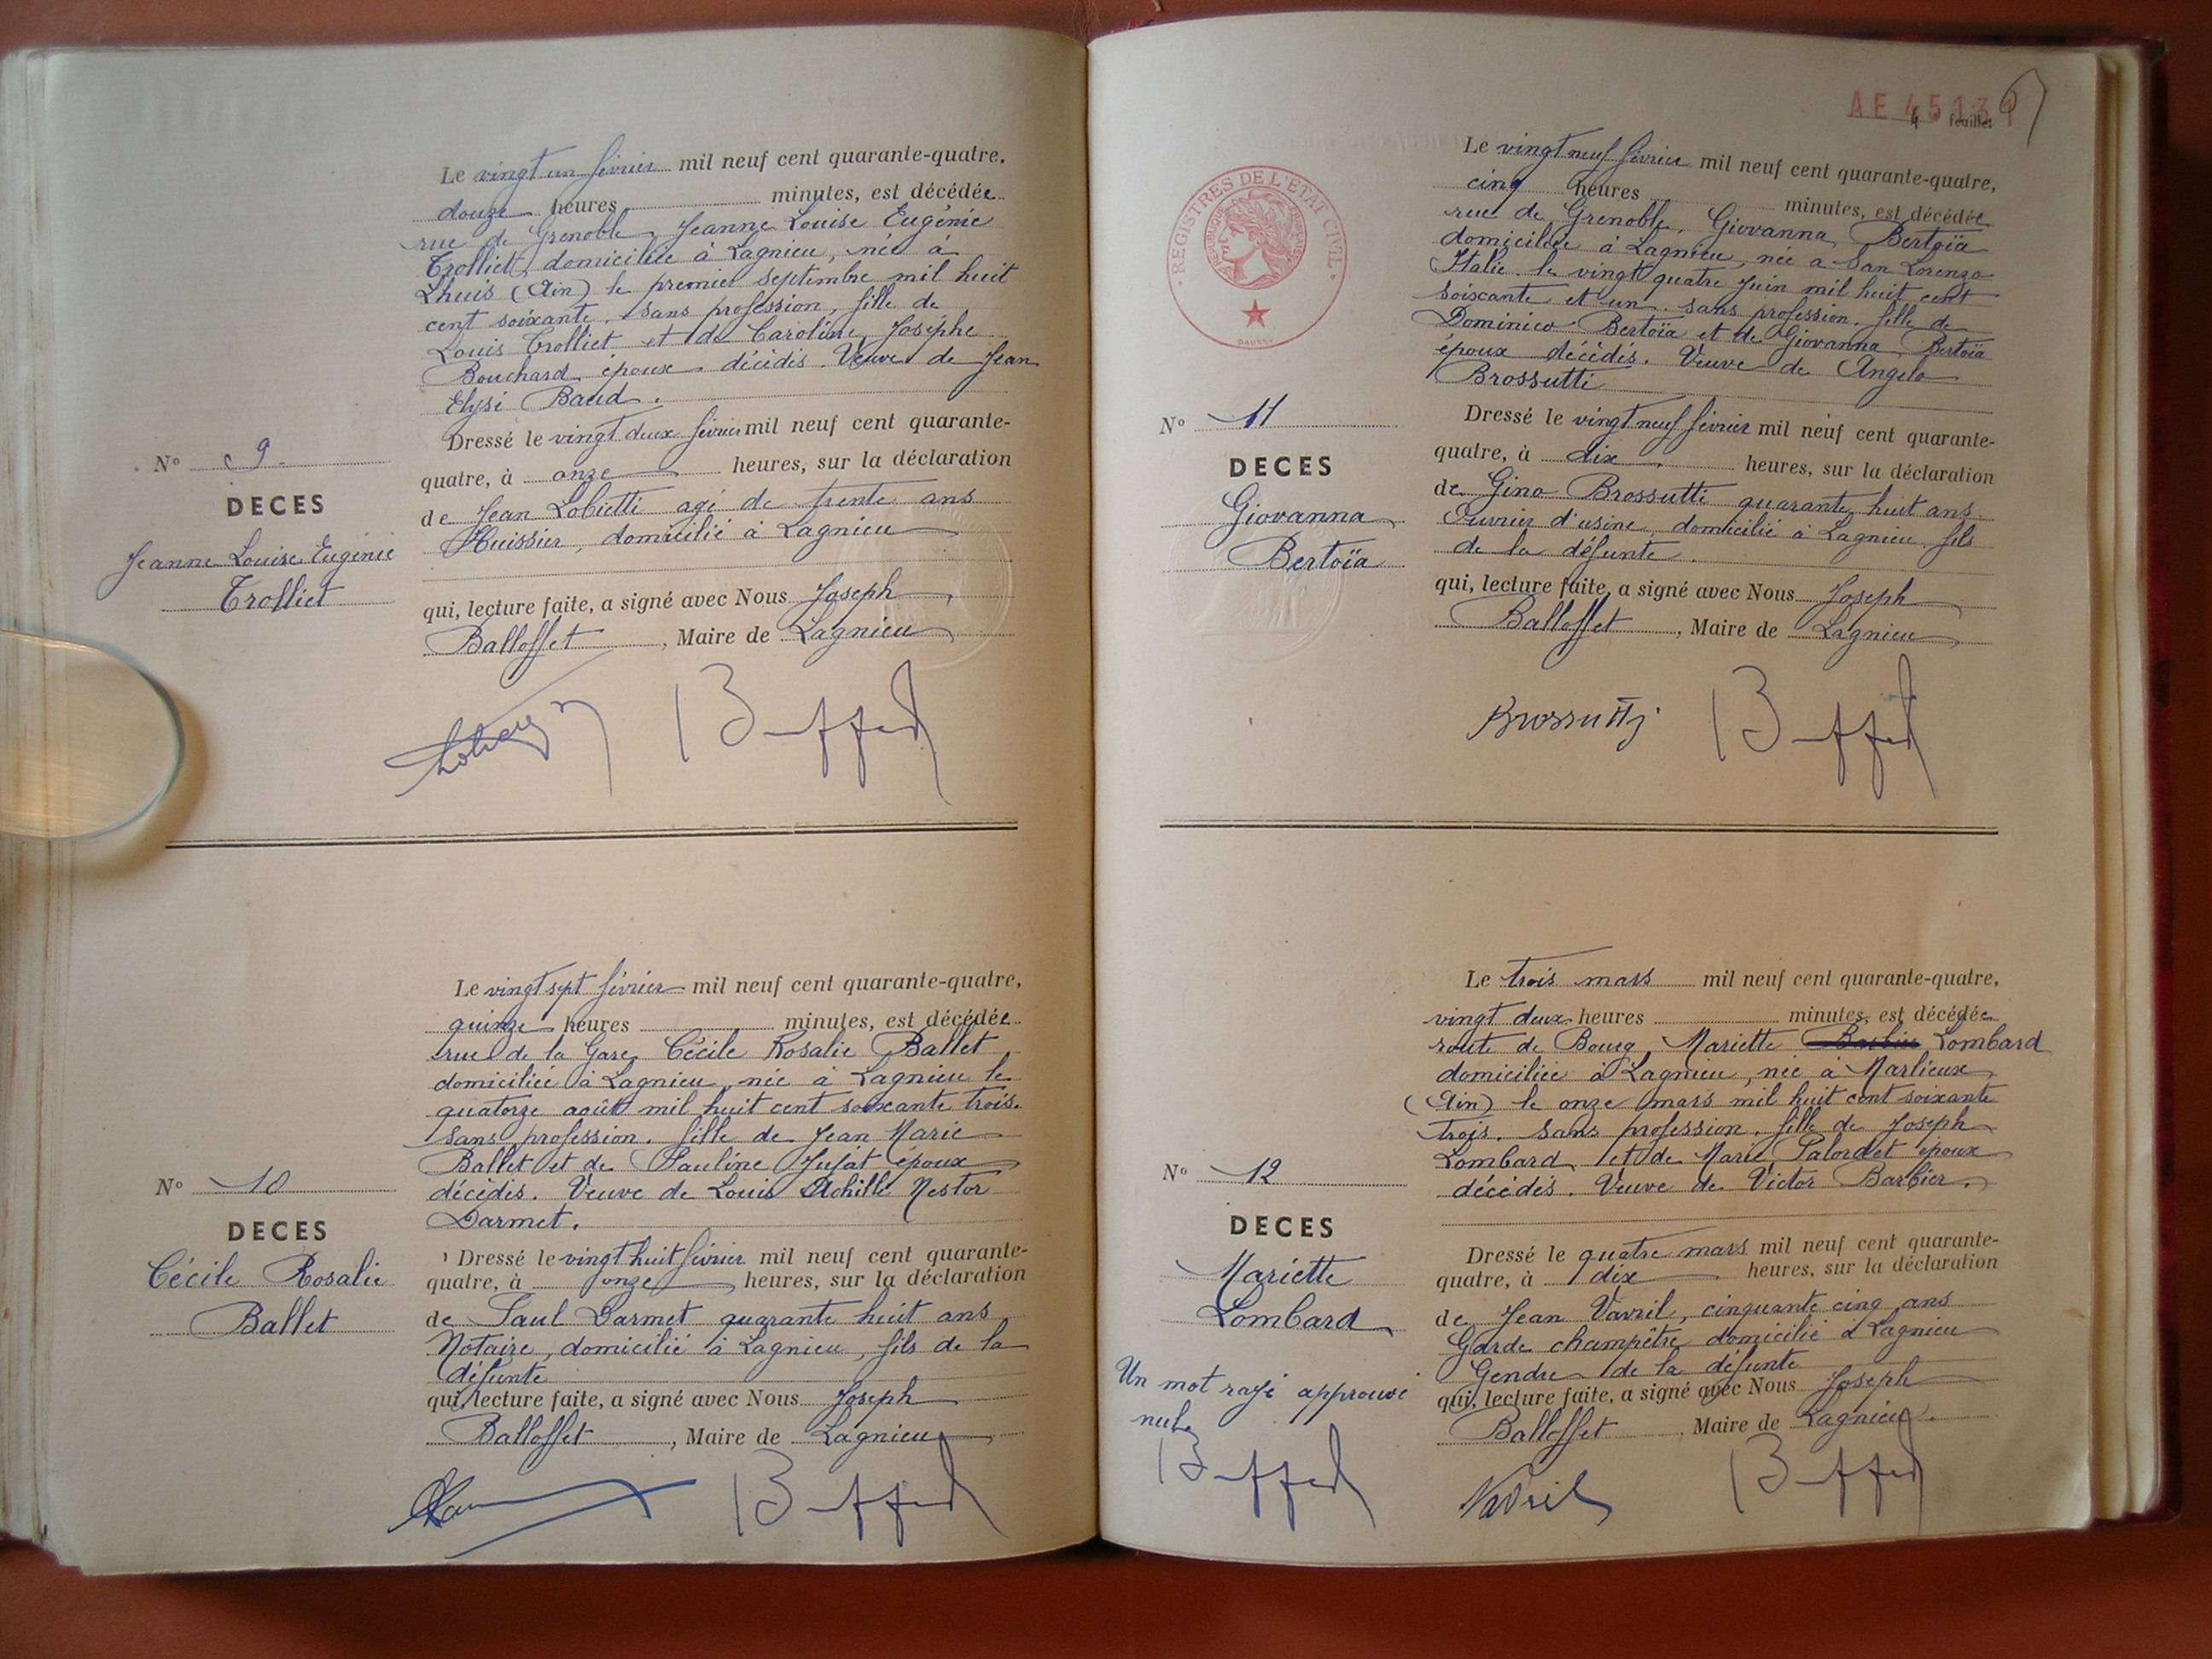 Le vingt un février mil neuf cent quarante-quatre,
douze heures minutes, est décédée
rue de Grenoble, Jeanne Louise Eugénie
Trolliet, domiciliée à Lagnieu, née à
Lhuis (Ain) le premier septembre mil huit
cent soixante, sans profession, fille de
Louis Trolliet et de Caroline, Josephe
Bouchard, époux décédés. Veuve de Jean
Elysé Baud.
Dressé le vingt deux février mil neuf cent quarante-
quatre, à onze heures, sur la déclaration
de Jean Lobietti agé de trente ans
Huissier, domicilié à Lagnieu
qui, lecture faite, a signé avec Nous Joseph
Balloffet, Maire de Lagnieu
N° 9.
DECES
Jeanne Louise Eugénie
Trolliet
Le vingt sept février mil neuf cent quarante-quatre,
quinze heures minutes, est décédée
rue de la Gare, Cécile Rosalie Ballet
domiciliée à Lagnieu, née à Lagnieu le
quatorze août mil huit cent soixante trois.
sans profession. fille de Jean Marie
Ballet et de Pauline Jufat époux
décédés. Veuve de Louis Achille Nestor
Darmet.
Dressé le vingt huit février mil neuf cent quarante-
quatre, à onze heures, sur la déclaration
de Paul Darmet quarante huit ans
Notaire, domicilié à Lagnieu, fils de la
défunte
qui, lecture faite, a signé avec Nous Joseph
Balloffet, Maire de Lagnieu
N° 10
DECES
Cécile Rosalie
Ballet
AE 45131
4 feuille
REGISTRES DE L'ETAT CIVIL
Le vingt neuf février mil neuf cent quarante-quatre,
cinq heures minutes, est décédée
rue de Grenoble, Giovanna, Bertoïa
domiciliée à Lagnieu, née à San Lorenzo
Italie. le vingt quatre juin mil huit cent
soixante et un. sans profession. fille de
Dominico Bertoïa et de Giovanna, Bertoïa
époux décédés. Veuve de Angelo
Brossutti
Dressé le vingt neuf février mil neuf cent quarante-
quatre, à dix heures, sur la déclaration
de Gino Brossutti quarante huit ans
Ouvrier d'usine, domicilié à Lagnieu, fils
de la défunte.
qui, lecture faite, a signé avec Nous Joseph
Balloffet, Maire de Lagnieu
N° 11
DECES
Giovanna
Bertoïa
Brossutti
Le trois mars mil neuf cent quarante-quatre,
vingt deux heures minutes, est décédée
route de Bourg, Mariette Barbier Lombard
domiciliée à Lagnieu, née à Marlieux
(Ain) le onze mars mil huit cent soixante
trois. sans profession. fille de Joseph
Lombard et de Marie Palordet époux
décédés. Veuve de Victor Barbier.
Dressé le quatre mars mil neuf cent quarante-
quatre, à dix heures, sur la déclaration
de Jean Vavril, cinquante cinq ans
Garde champêtre domicilié à Lagnieu
Gendre de la défunte
qui, lecture faite, a signé avec Nous Joseph
Balloffet, Maire de Lagnieu.
N° 12
DECES
Mariette
Lombard
Un mot rayé approuvé
nul
Vavril